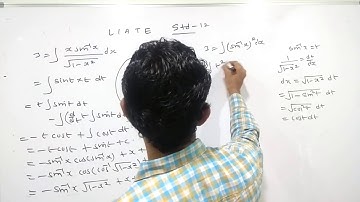 LIATE Std-12
I = ∫ x sin⁻¹x / √(1-x²) dx
= ∫ sint × t dt
= t ∫ sint dt
- ∫ (d/dt t ∫ sint dt
= -t cost + ∫ cost dt
= -t cost + sint +
= -sin⁻¹x cos(sin⁻¹x) + x +
= -sin⁻¹x cos(cos⁻¹√(1-x²)) +
= -sin⁻¹x √(1-x²) + x +
I = ∫ (sin⁻¹x)² dx
sin⁻¹x = t
1/√(1-x²) = dt/dx
dx = √(1-x²) dt
= √(1-sin²t) dt
= √cos²t dt
= cost dt